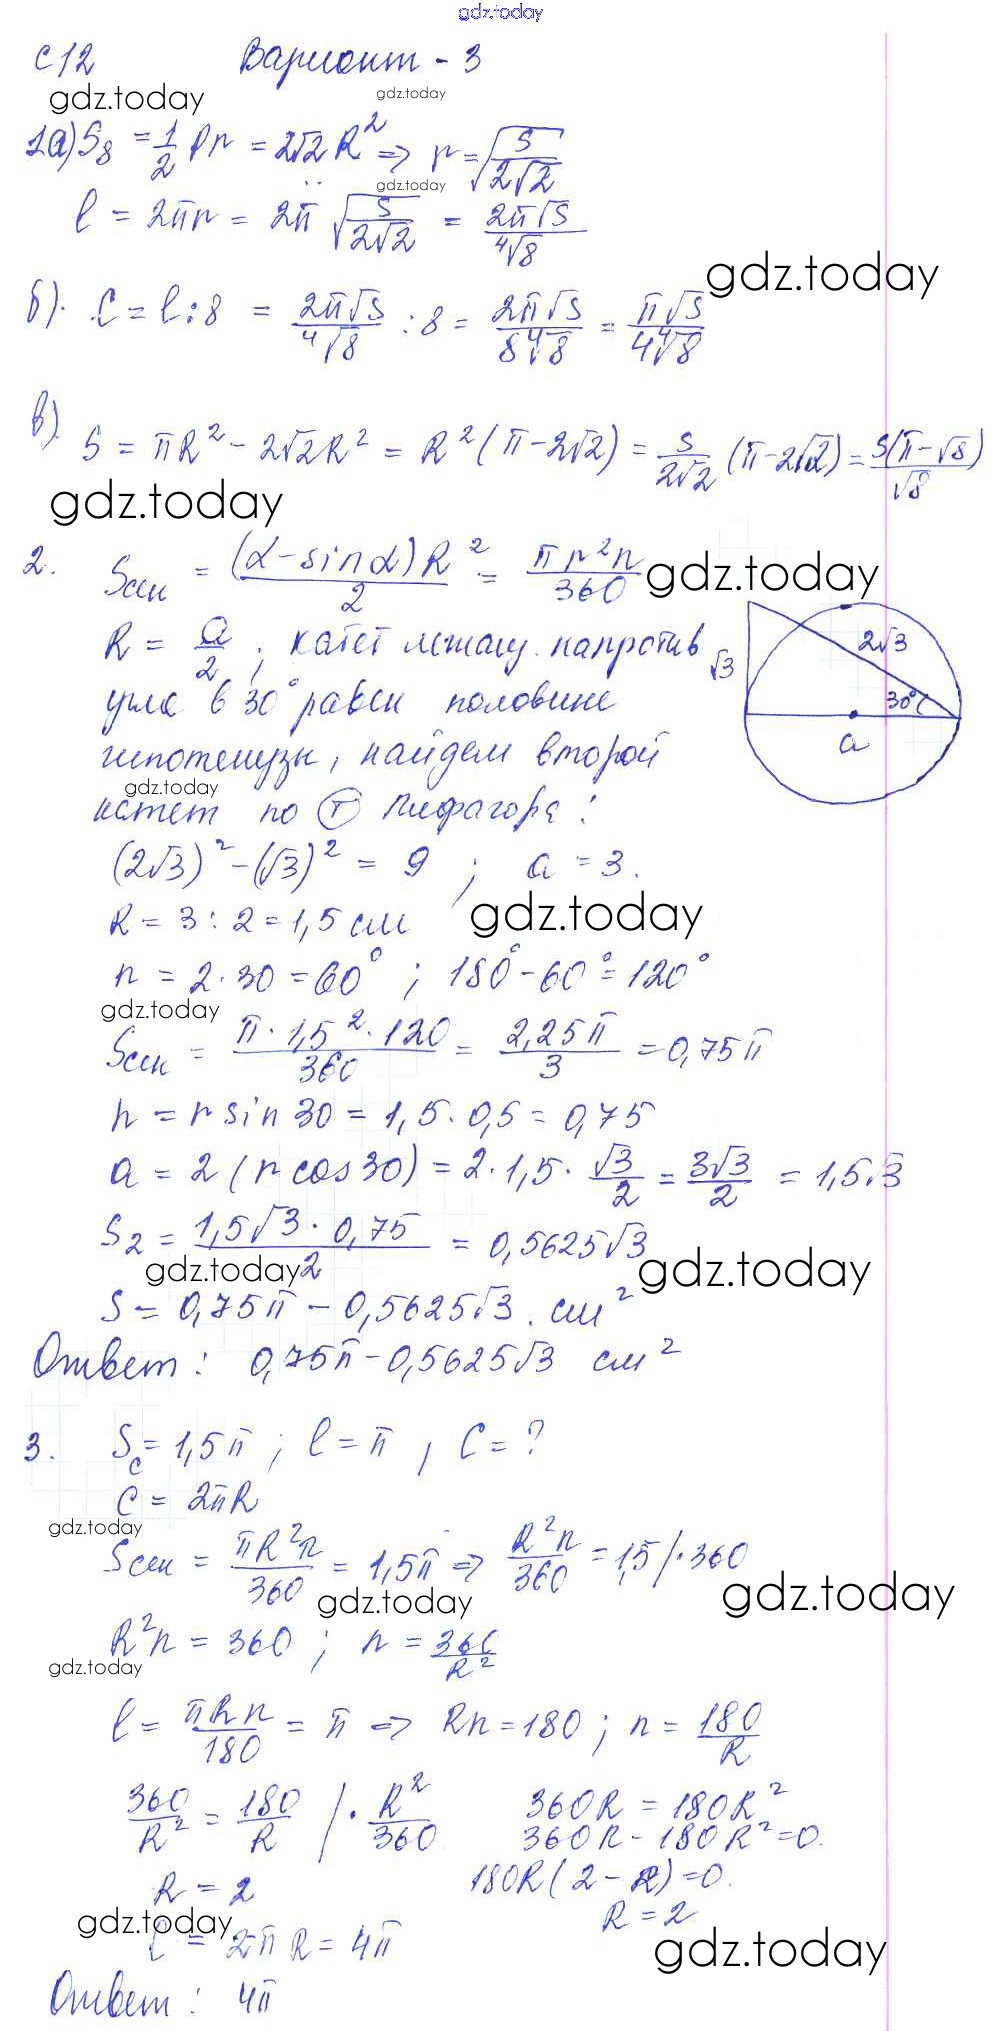 gdz.today
С12 Вариант - 3
gdz.today gdz.today
1а) S₈ = 1/2 Pr = 2√2 R² => r = √(S/(2√2))
gdz.today
l = 2πr = 2π √(S/(2√2)) = 2π√S/⁴√8
gdz.today
б). C = l : 8 = 2π√S/⁴√8 : 8 = 2π√S/(8⁴√8) = π√S/(4⁴√8)
в). S = πR² - 2√2R² = R²(π - 2√2) = S/(2√2) (π - 2√2) = S(π - √8)/√8
gdz.today
2. Sсек = (α - sinα)R²/2 = πr²n/360
gdz.today
R = a/2 ; катет лежащ. напротив
угла в 30° равен половине
гипотенузы, найдем второй
gdz.today
катет по Т Пифагора:
√3 2√3 30° a
(2√3)² - (√3)² = 9 ; a = 3.
R = 3 : 2 = 1,5 см
gdz.today
n = 2 · 30 = 60° ; 180° - 60° = 120°
gdz.today
Sсек = π · 1,5² · 120/360 = 2,25π/3 = 0,75π
h = r sin 30 = 1,5 · 0,5 = 0,75
a = 2 (r cos 30) = 2 · 1,5 · √3/2 = 3√3/2 = 1,5√3
S₂ = 1,5√3 · 0,75/2 = 0,5625√3
gdz.today gdz.today
S = 0,75π - 0,5625√3 . см²
Ответ: 0,75π - 0,5625√3 см²
3. Sс = 1,5π ; l = π , C = ?
C = 2πR
gdz.today
Sсек = πR²n/360 = 1,5π => R²n/360 = 1,5 / · 360
gdz.today gdz.today
R²n = 360 ; n = 360/R²
gdz.today
l = πRn/180 = π => Rn = 180 ; n = 180/R
360/R² = 180/R / · R²/360 360R = 180R²
360R - 180R² = 0.
R = 2 180R(2 - R) = 0.
R = 2
gdz.today
l = 2πR = 4π
gdz.today
Ответ: 4π